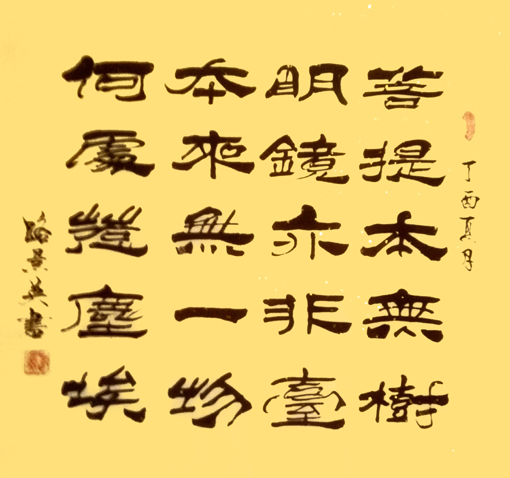 丁酉夏月
菩提本無樹
明鏡亦非臺
本來無一物
何處塵埃
路景英書